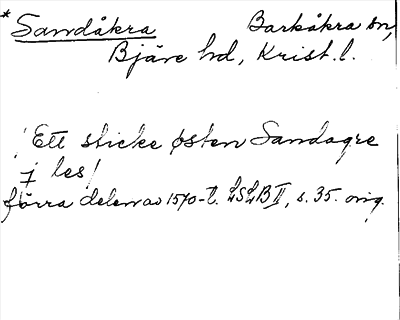 * Sandåkra Barkåkra sn,
Bjäre hd, Krist. l.
Ett sticke østen Sandagre
j les
förra delen av 1570-t. LSLB II, s. 35. orig.